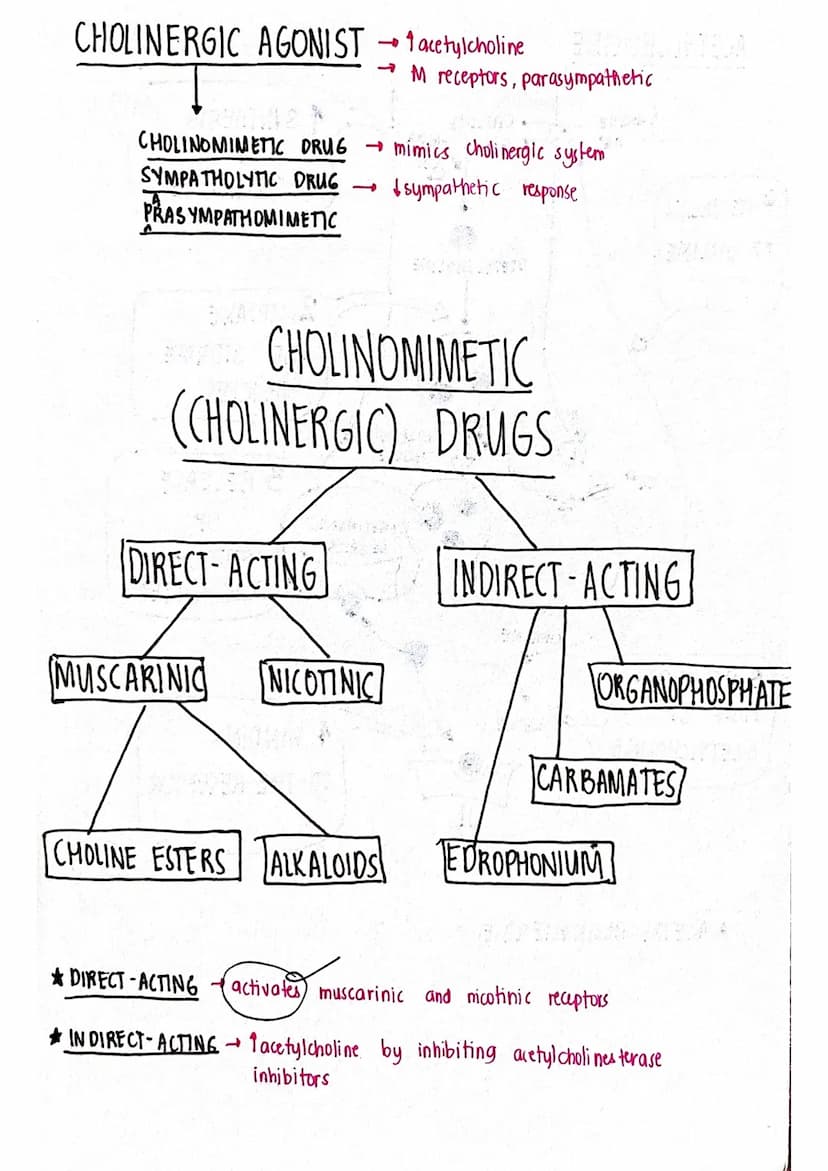 CHOLINERGIC AGONIST → ↑acetylcholine
→ M receptors, parasympathetic
CHOLINOMIMETIC DRUG → mimics cholinergic system
SYMPATHOLYTIC DRUG → ↓sympathetic response
PARASYMPATHOMIMETIC
CHOLINOMIMETIC
(CHOLINERGIC) DRUGS
DIRECT-ACTING
INDIRECT-ACTING
MUSCARINIC
NICOTINIC
ORGANOPHOSPHATE
CARBAMATES
CHOLINE ESTERS
ALKALOIDS
EDROPHONIUM
★ DIRECT-ACTING → activates muscarinic and nicotinic receptors
★ INDIRECT-ACTING → ↑acetylcholine by inhibiting acetylcholinesterase
inhibitors